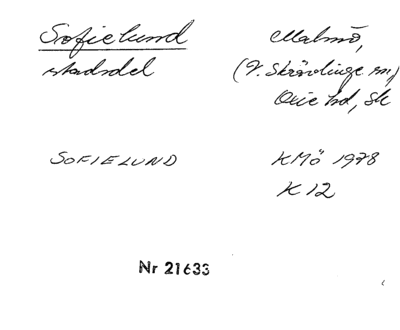 Sofielund
stadsdel
Malmö,
(V. Skrävlinge sn,)
Oxie hd, Sk
SOFIELUND
KMÖ 1978
K 12
Nr 21633